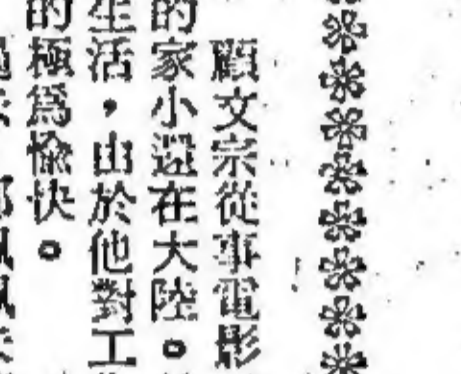 顧文宗從事電影
的家小還在大陸。
生活,由於他對工
的極為愉快。